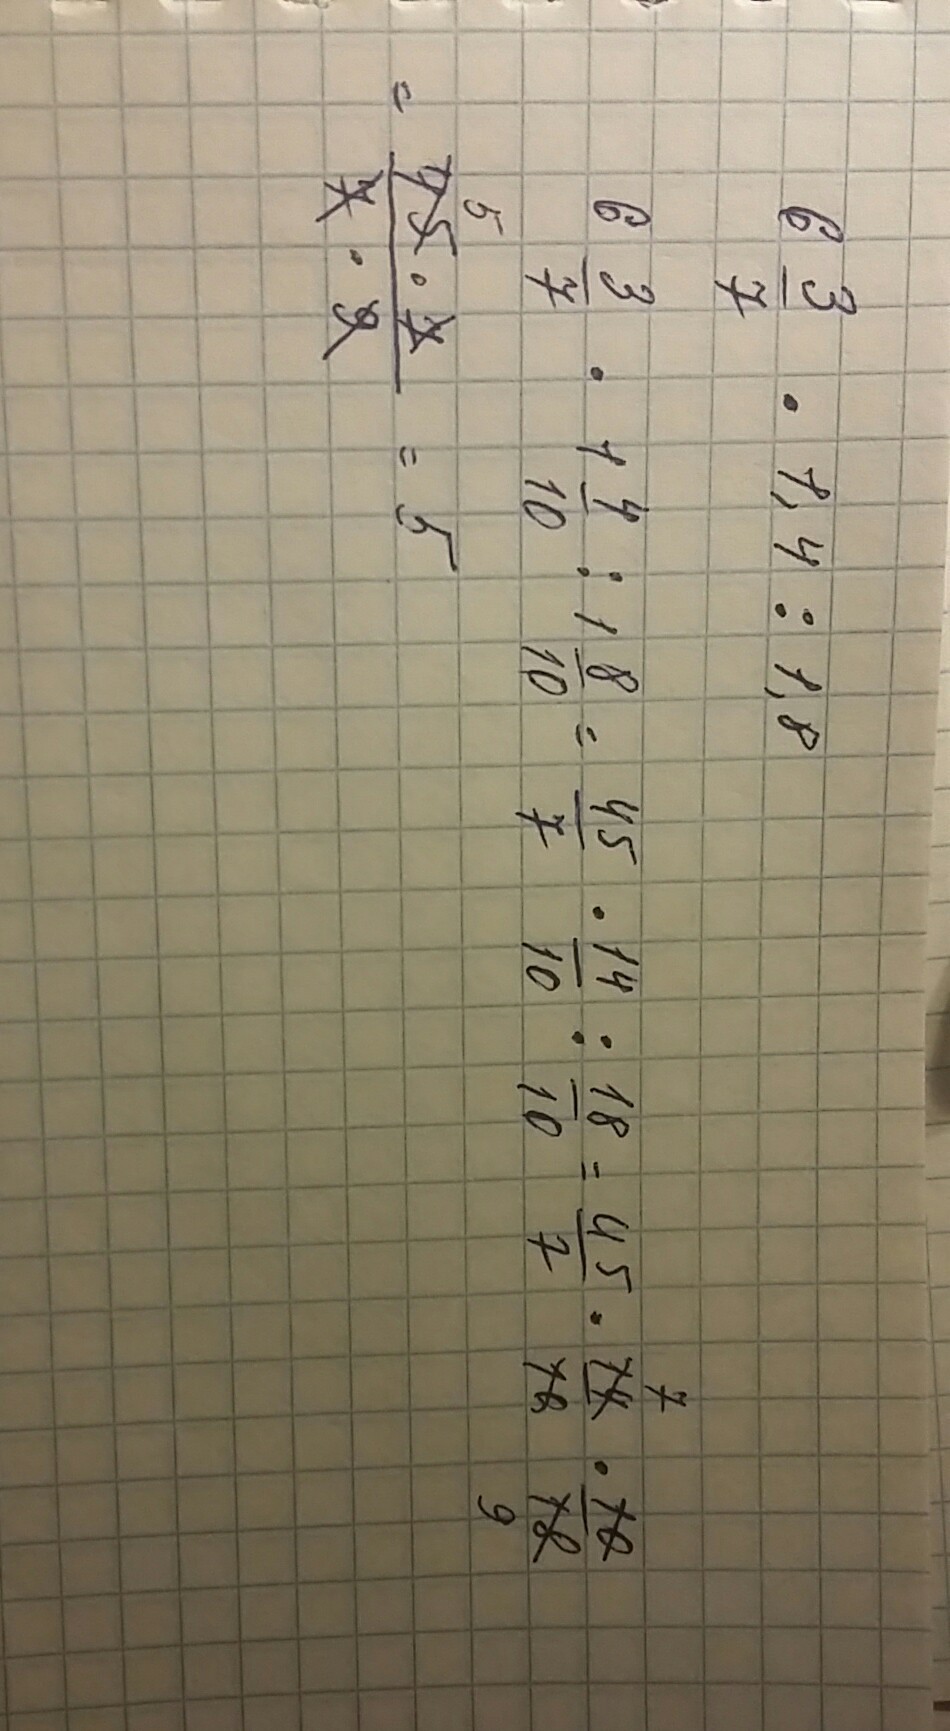 6 3/7 · 1,4 : 1,8
6 3/7 · 1 4/10 : 1 8/10 = 45/7 · 14/10 : 18/10 = 45/7 · 14/10 · 10/18
7
9
5
= 45 · 7 / 7 · 9 = 5